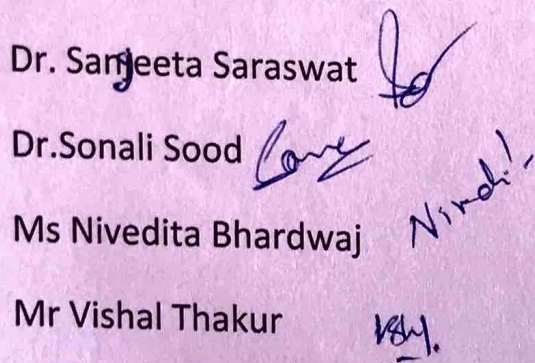 Dr. Sanjeeta Saraswat
Dr.Sonali Sood
Ms Nivedita Bhardwaj
Mr Vishal Thakur